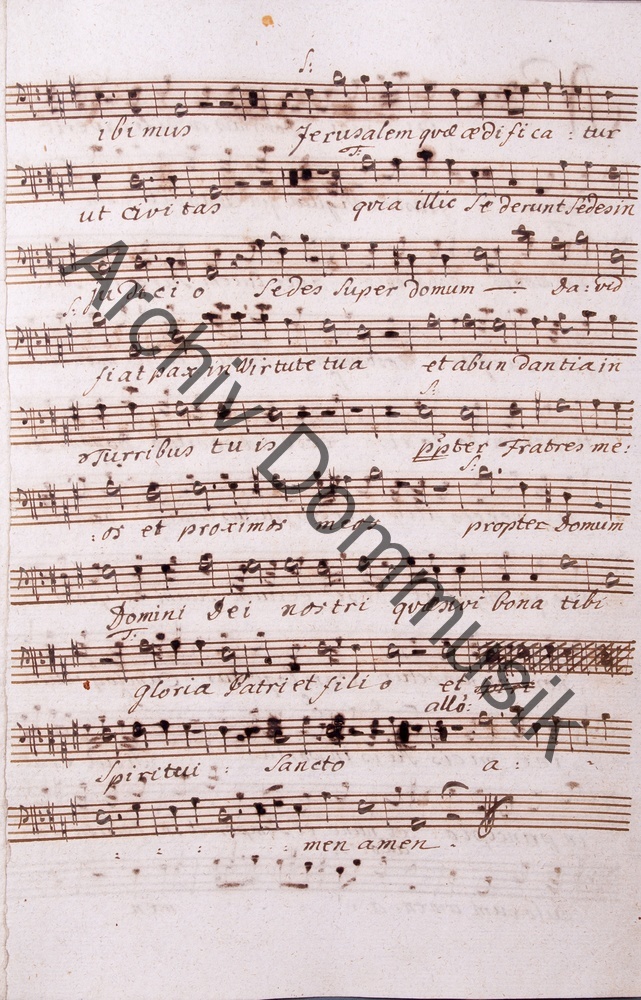 S:
ibimus Jerusalem quæ ædifica : tur
T:
ut Civitas quia illic Sederunt Sedes in
Judicio Sedes Super domum — Da : vid
S:
fiat pax in Virtute tua et abundantia in
S:
Turribus tuis ppter Fratres me :
S:
: os et proximos meos propter Domum
Domini Dei nostri quæsivi bona tibi
T:
gloria Patri et filio et
allo:
Spiritui : Sancto a :
men amen .
Archiv Dommusik